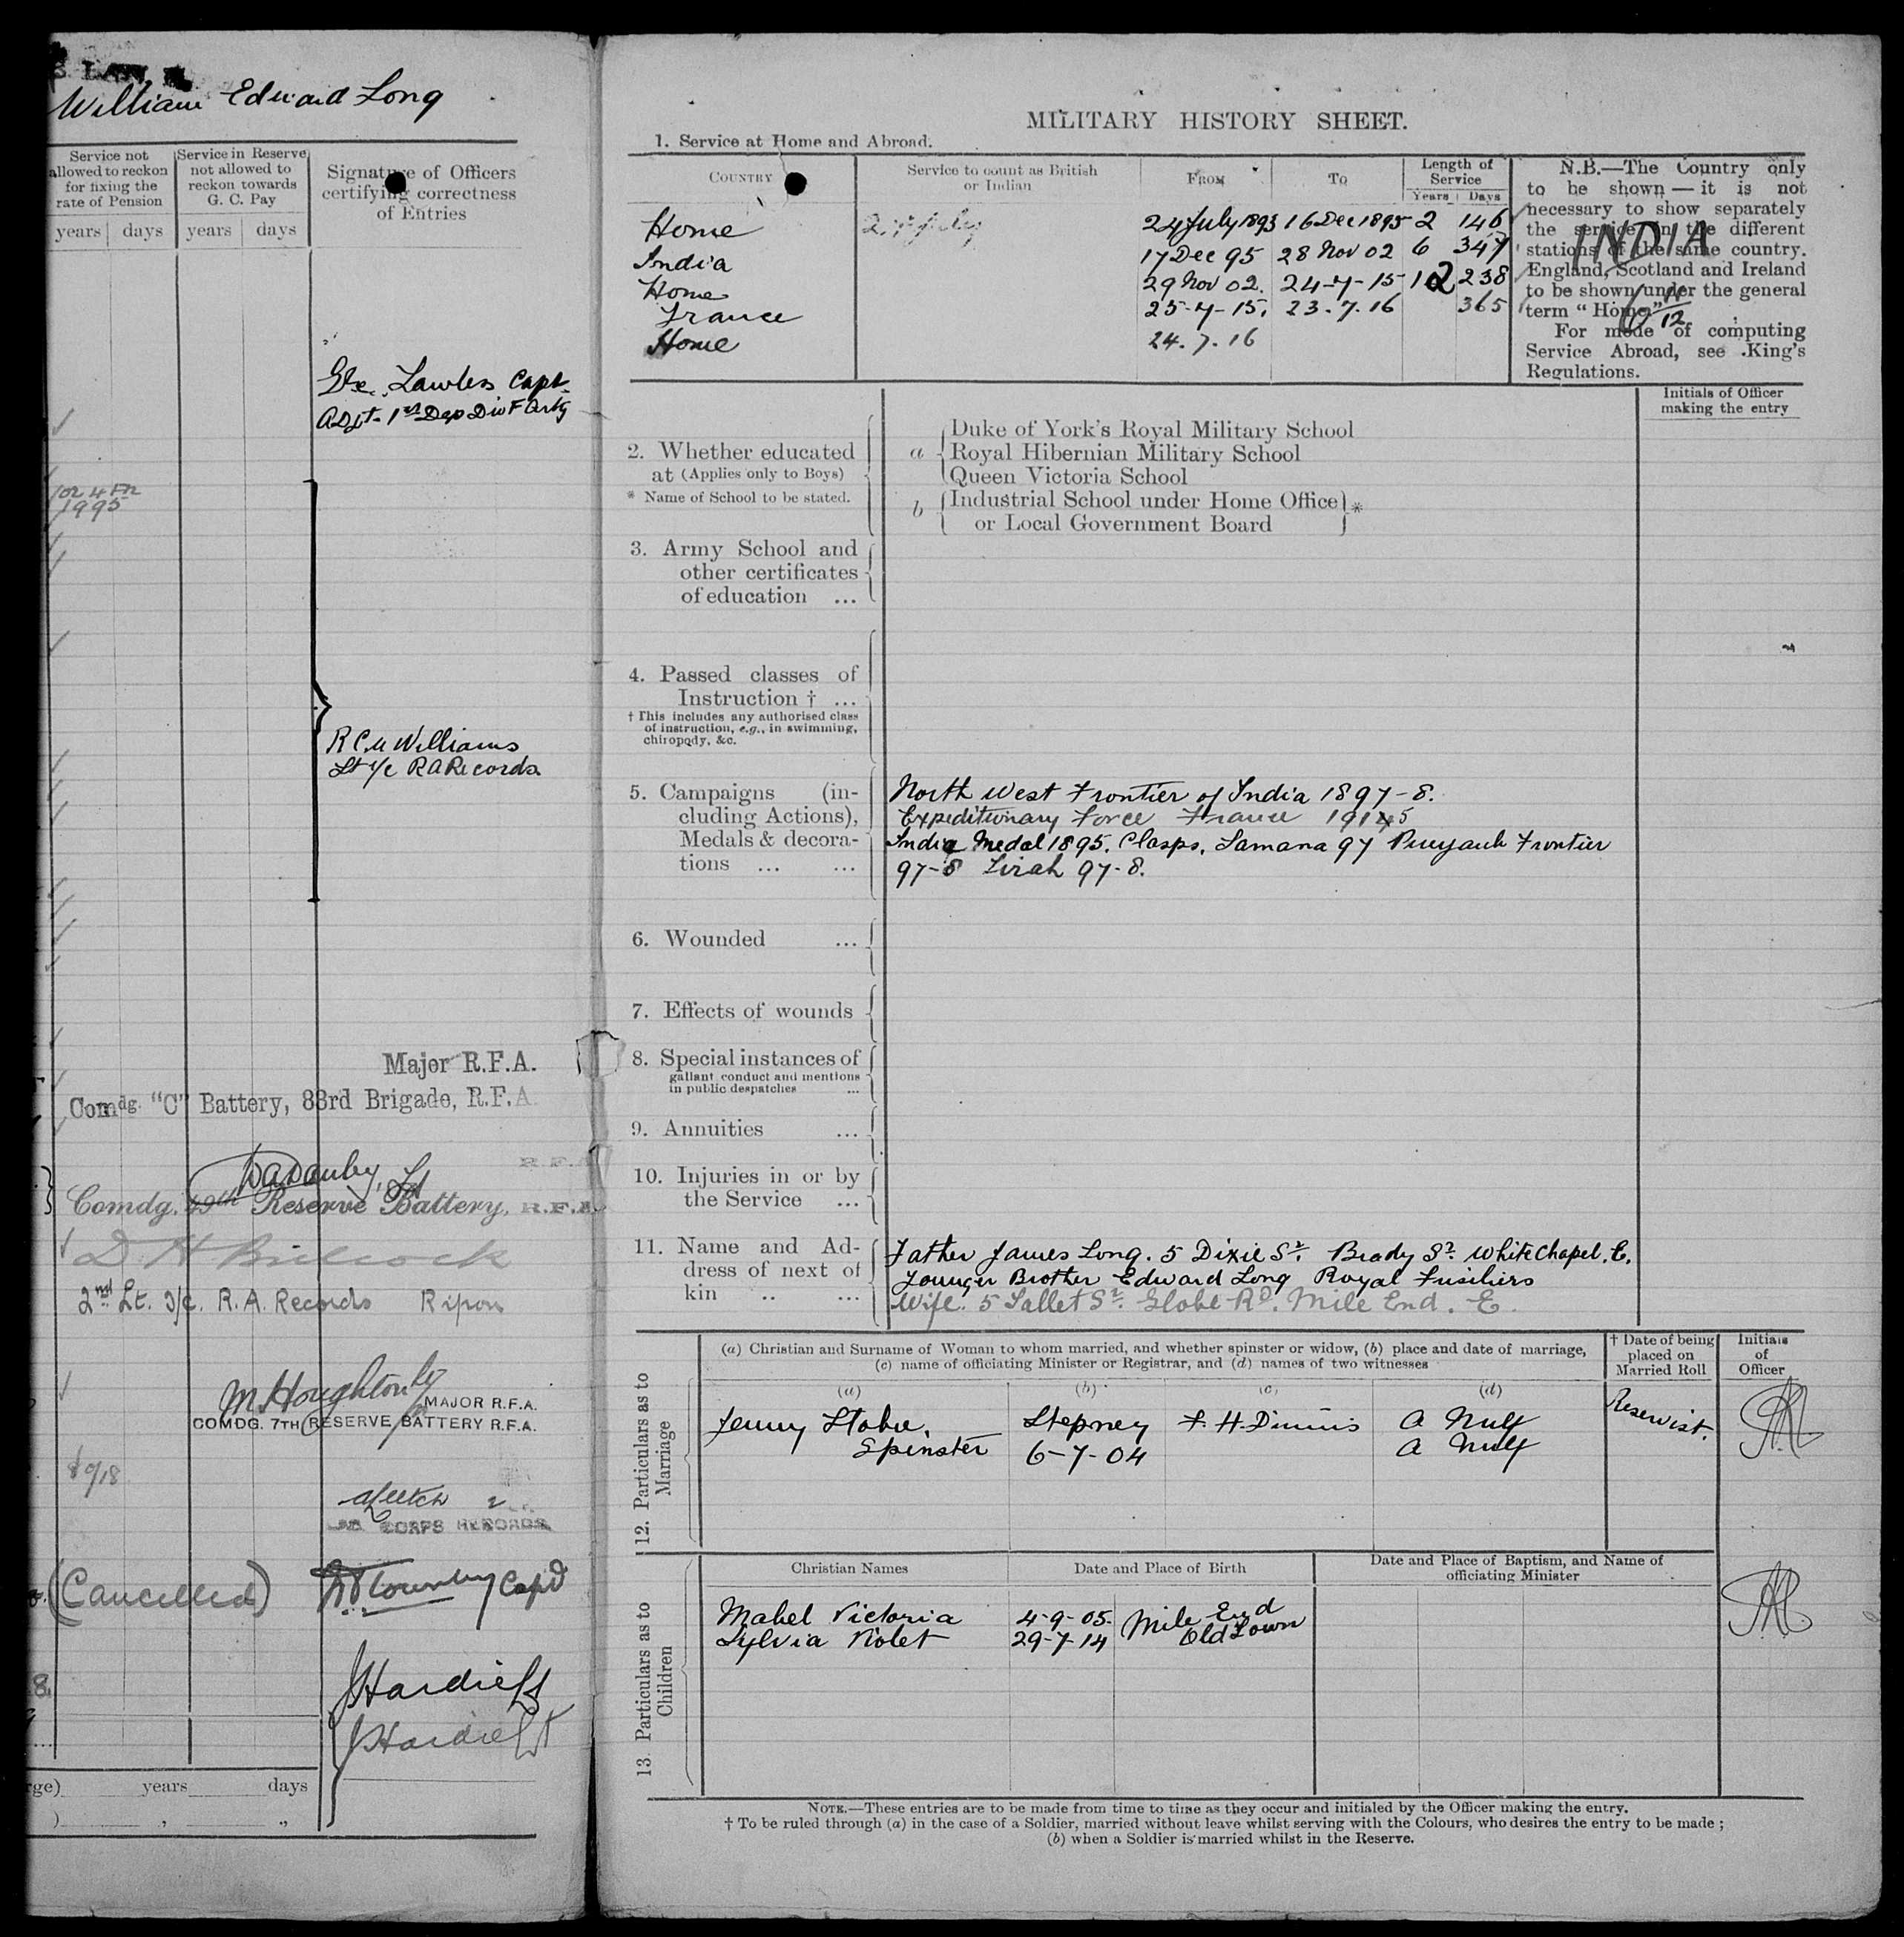 William Edward Long
Service not
allowed to reckon
for fixing the
rate of Pension
Service in Reserve
not allowed to
reckon towards
G. C. Pay
Signature of Officers
certifying correctness
of Entries
years days years days
Lawless Capt
Adjt. 1st Dep Div F Arty
1995
R C M Williams
Lt i/c R A Records
Major R.F.A.
Comdg. "C" Battery, 83rd Brigade, R.F.A
Lt
Comdg. 49th Reserve Battery, R.F.A
2nd Lt. I/c. R. A. Records Ripon
M. Houghton
MAJOR R.F.A.
COMDG. 7TH RESERVE BATTERY R.F.A.
CORPS RECORDS
(Cancelled) Capt
J Hardie Lt
J Hardie Lt
rge) years days
) , „
MILITARY HISTORY SHEET.
1. Service at Home and Abroad.
Country
Service to count as British
or Indian
From
To
Length of
Service
Years Days
Home 24 July 1893 16 Dec 1895 2 146
India 17 Dec 95 28 Nov 02 6 347
Home 29 Nov 02. 24-7-15 12 238
France 25-7-15. 23.7.16 365
Home 24.7.16
N.B.—The Country only
to be shown — it is not
necessary to show separately
the service in the different
stations of the same country.
England, Scotland and Ireland
to be shown under the general
term "Home."
For mode of computing
Service Abroad, see King's
Regulations.
INDIA
6 11/12
Initials of Officer
making the entry
2. Whether educated
at (Applies only to Boys)
* Name of School to be stated.
a Duke of York's Royal Military School
Royal Hibernian Military School
Queen Victoria School
b Industrial School under Home Office
or Local Government Board *
3. Army School and
other certificates
of education ...
4. Passed classes of
Instruction † ...
† This includes any authorised class
of instruction, e.g., in swimming,
chiropody, &c.
5. Campaigns (in-
cluding Actions),
Medals & decora-
tions ... ...
North West Frontier of India 1897-8.
Expeditionary Force France 1915
India Medal 1895. Clasps, Samana 97 Punjaub Frontier
97-8 Tirah 97-8.
6. Wounded ...
7. Effects of wounds
8. Special instances of
gallant conduct and mentions
in public despatches ...
9. Annuities ...
10. Injuries in or by
the Service ...
11. Name and Ad-
dress of next of
kin .. ...
Father James Long. 5 Dixie St. Brady St. White Chapel. E.
Younger Brother Edward Long Royal Fusiliers
Wife. 5 Tallet St. Globe Rd. Mile End. E.
12. Particulars as to
Marriage
(a) Christian and Surname of Woman to whom married, and whether spinster or widow, (b) place and date of marriage,
(c) name of officiating Minister or Registrar, and (d) names of two witnesses
† Date of being
placed on
Married Roll
Initials
of
Officer
(a) (b) (c) (d)
Jenny Stoker. Stepney F. H. Dinnis A Nulf Reservist.
Spinster 6-7-04 A Nulf
13 Particulars as to
Children
Christian Names
Date and Place of Birth
Date and Place of Baptism, and Name of
officiating Minister
Mabel Victoria 4-9-05. Mile End
Sylvia Violet 29-7-14 Old Town
Note.—These entries are to be made from time to time as they occur and initialed by the Officer making the entry.
† To be ruled through (a) in the case of a Soldier, married without leave whilst serving with the Colours, who desires the entry to be made ;
(b) when a Soldier is married whilst in the Reserve.